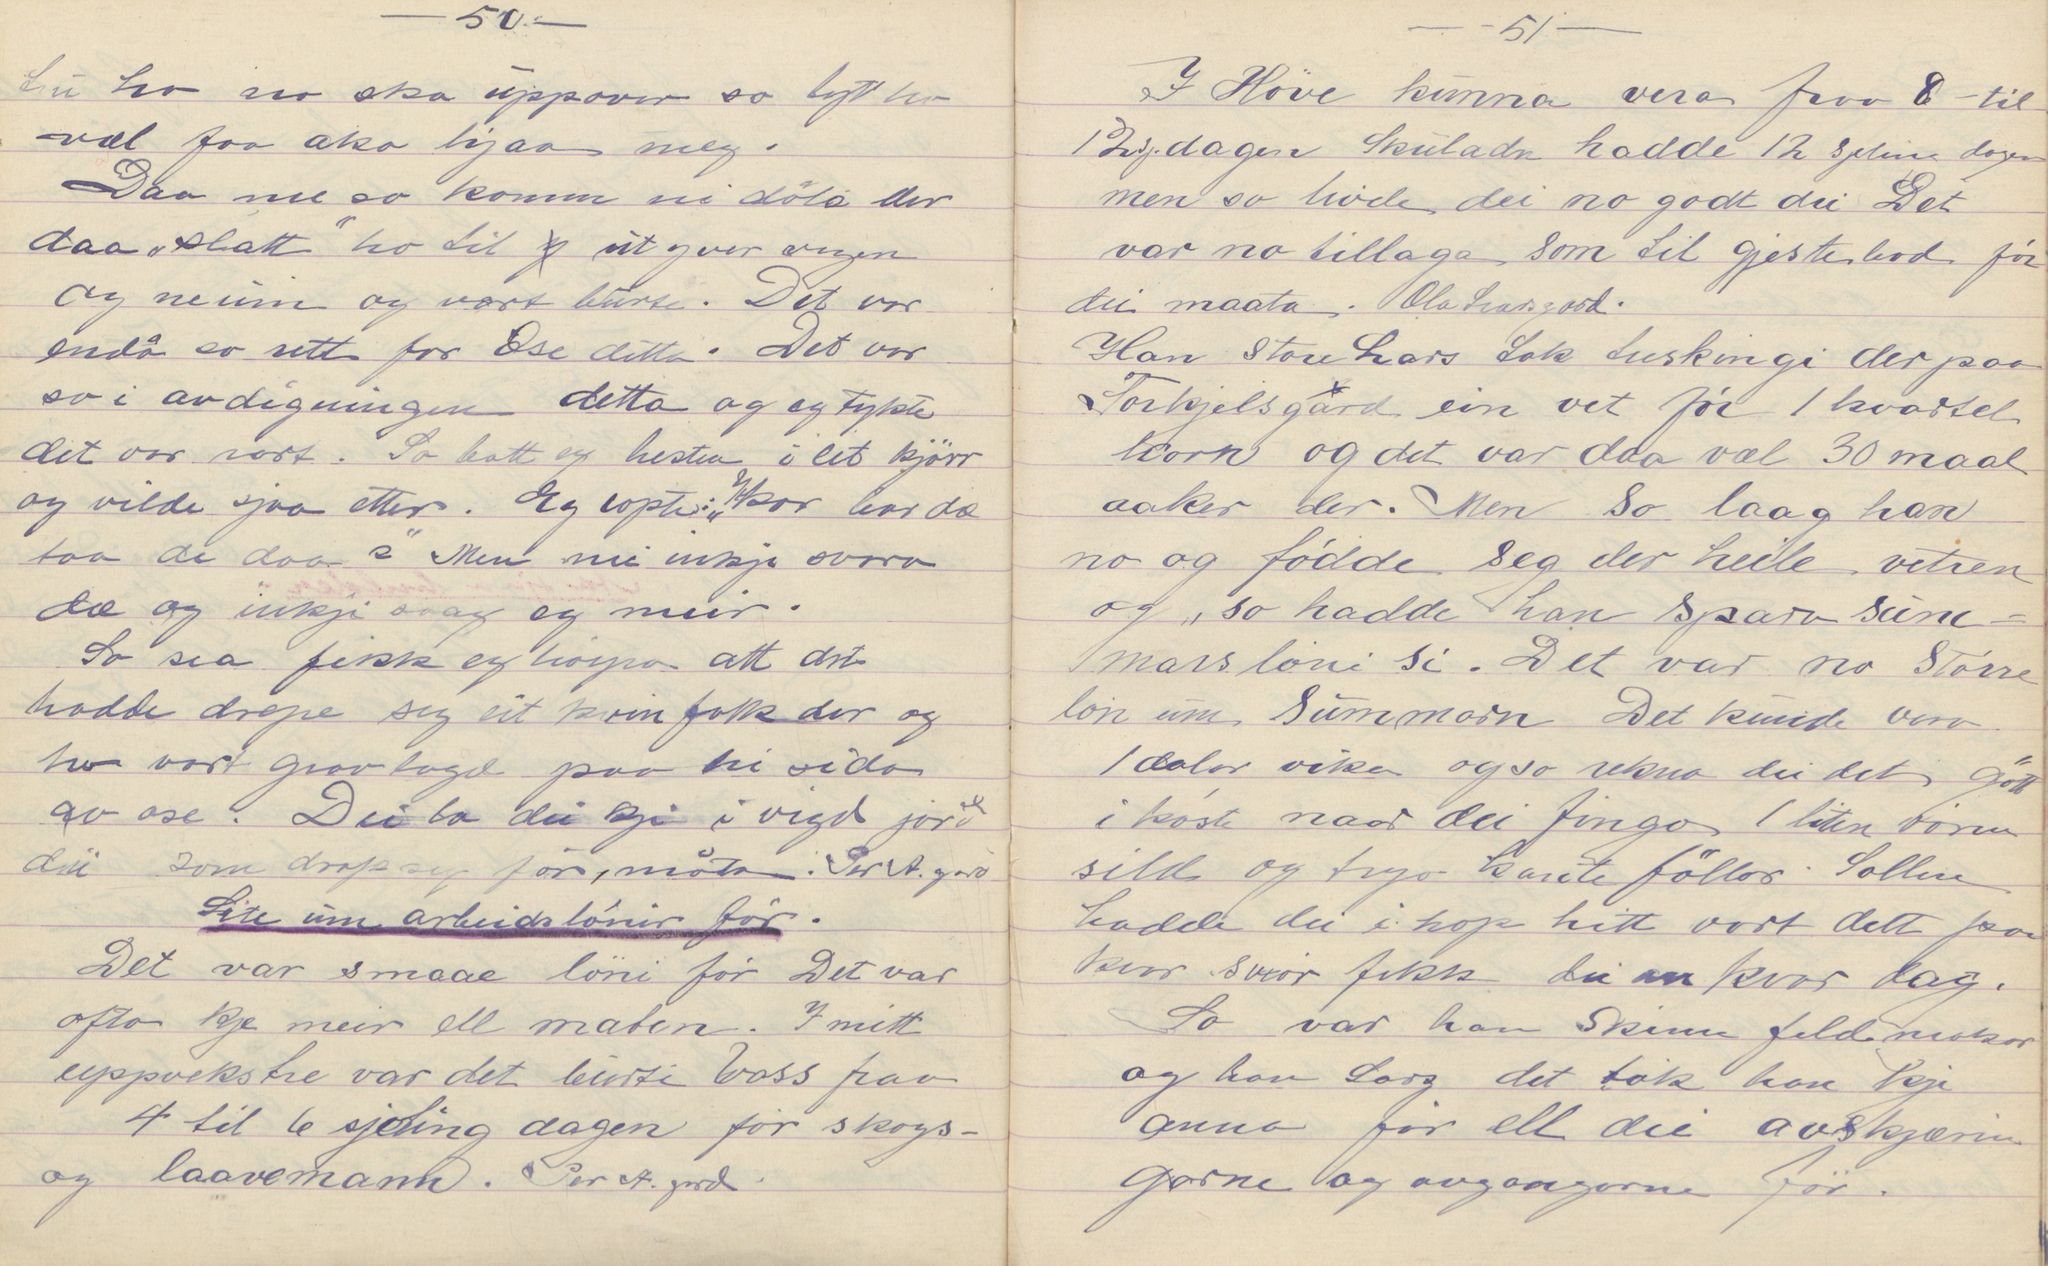 — 50. —
ho no ska uppover so lyt ho
væl faa aka hjaa meg.
Daa me so komm ni döla der
daa „slatt" ho til ut yver vegen
og neum og vart burte. Det var
endå so rett for Ose detta. Det var
so i avdigningen detta og eg tykte
det var rart. So batt eg hesten i eit kjörr
og vilde sjaa etter. Eg ropte: „Kor bar dæ
taa de daa?" Men nei inkje svara
dæ og inkji saag eg meir.
So sea fikk eg höyra att det
hadde drepe seg eit kvinfolk der og
ho vart gravlagd paa hi sida
av ose. Dei la dei kji i vigd jord
dei som drap seg för, måta. Per A. gard
Lite um arbeidslönir för.
Det var smaae löni för Det var
ofta kje meir ell maten. I mitt
uppvekstre var det burti Voss fraa
4 til 6 sjeling dagen för skogs-
og laavemann. Per A. gard.
— 51 —
I Höve kunna vera fraa 8 til
12 sj. dagen Skuladn hadde 12 sjeling dagen
men so livde dei no godt dei Det
var no tillaga som til gjestebod för
dei maata. Ola Larsgard.
Han Store Lars tok tuskingi der paa
Torkjelsgård ein vet för 1 kvartel
korn og det var daa væl 30 maal
aaker der. Men so laag han
no og födde seg der heile vetren
og „so hadde han spara sume=
mars löni si. Det var no större
lön um Summarn Det kunde vera
1 dalar vika ogso rekna dei det gött
i köste naar dei finga 1 liten
sild og trya kaute föllor Sollen
hadde dei i hop hitt vart dett paa
kvor fikk dei kvar dag.
So var han Skinnfeldmakar
og han Lars det tok han kje
anna för ell dei avskjærin
garne og avgangarne för.